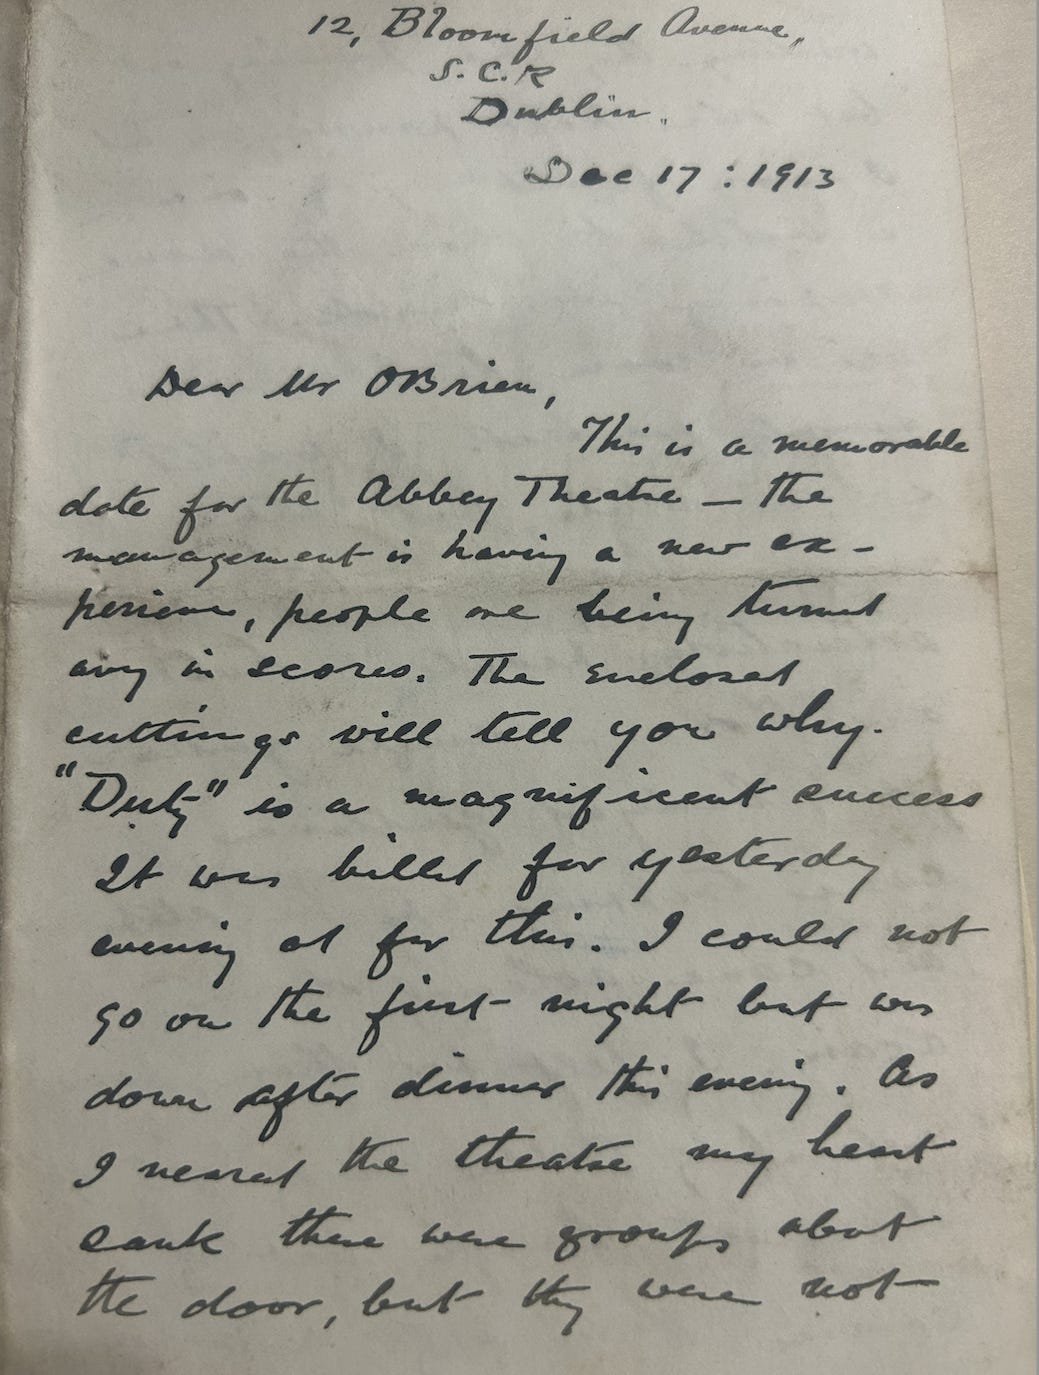 12, Bloomfield Avenue,
S. C. R
Dublin.
Dec 17 : 1913
Dear Mr OBrien,
This is a memorable
date for the Abbey Theatre — the
management is having a new ex-
perience, people are being turned
away in scores. The enclosed
cuttings will tell you why.
"Duty" is a magnificent success
It was billed for yesterday
evening and for this. I could not
go on the first night but was
down after dinner this evening. As
I neared the theatre my heart
sank there were groups about
the door, but they were not